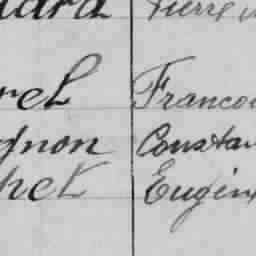 uard Pierre
rel Franco
gnon Constan
het Eugèn